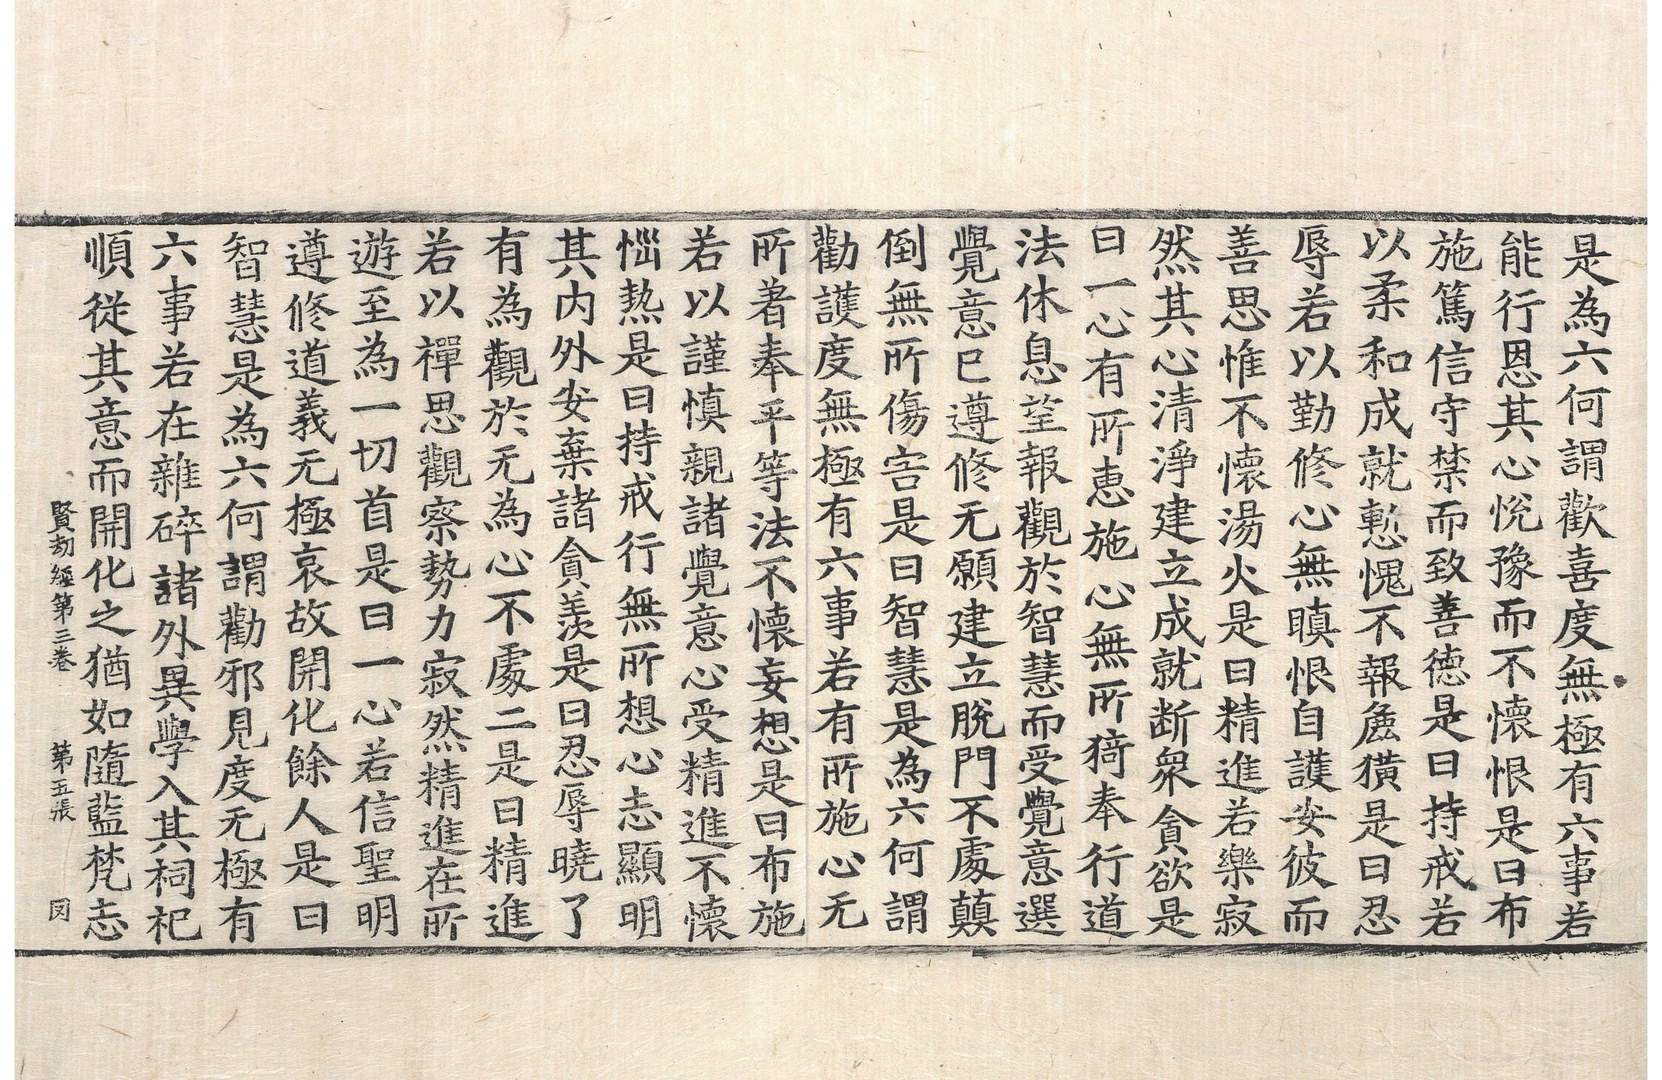 是為六何謂歡喜度無極有六事若
能行恩其心悅豫而不懷恨是曰布
施篤信守禁而致善德是曰持戒若
以柔和成就慙愧不報麁獷是曰忍
辱若以勤修心無瞋恨自護安彼而
善思惟不懷湯火是曰精進若樂寂
然其心清淨建立成就断衆貪欲是
曰一心有所惠施心無所猗奉行道
法休息望報觀於智慧而受覺意選
覺意已遵修无願建立脫門不處顛
倒無所傷害是曰智慧是為六何謂
勸護度無極有六事若有所施心无
所著奉平等法不懷妄想是曰布施
若以謹慎親諸覺意心受精進不懷
惱熱是曰持戒行無所想心志顯明
其內外安棄諸貪羨是曰忍辱曉了
有為觀於无為心不處二是曰精進
若以禪思觀察勢力寂然精進在所
遊至為一切首是曰一心若信聖明
遵修道義无極哀故開化餘人是曰
智慧是為六何謂勸邪見度无極有
六事若在雜碎諸外異學入其祠祀
順從其意而開化之猶如隨藍梵志
賢劫經第三卷　第五張　㓁